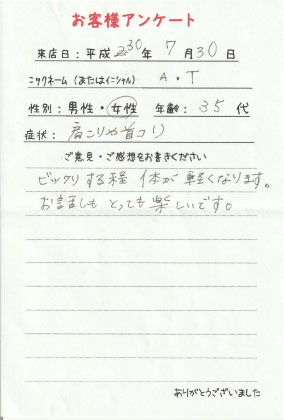 お客様アンケート
来店日：平成30年 7月30日
ニックネーム（またはイニシャル） A・T
性別：男性・女性 年齢：35代
症状：肩こりや首コリ
ご意見・ご感想をお書きください
ビックリする程 体が軽くなります。
お話しも とっても楽しいです。
ありがとうございました